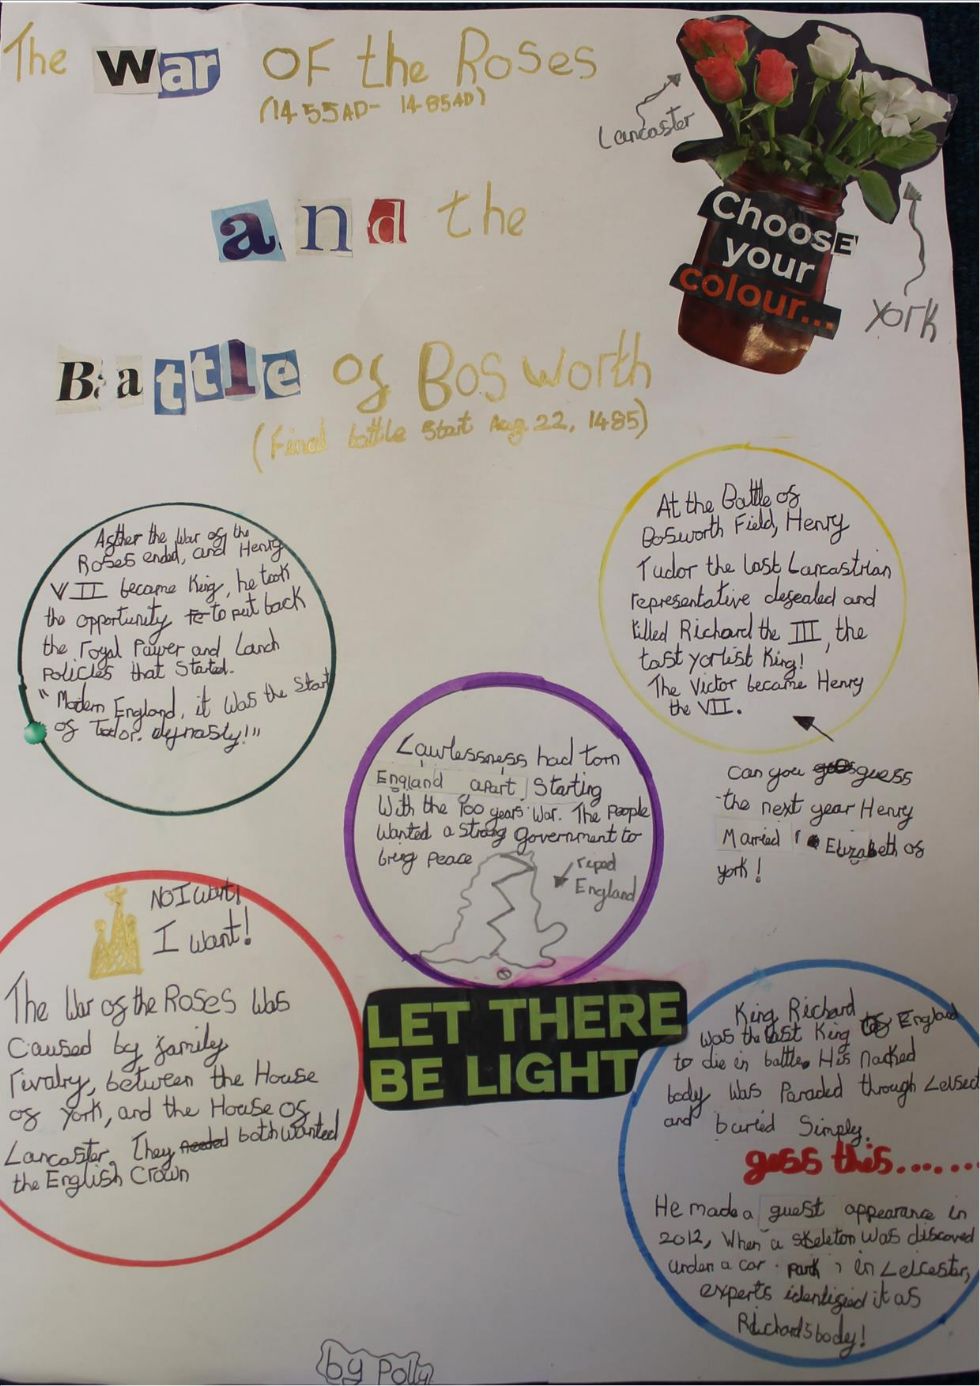 The War OF the Roses
(1455AD- 1485AD)
Lancaster
and the
Choose
your
colour...
York
Battle of Bosworth
(Final battle Start Aug 22, 1485)
Asther the War of the
Roses ended, and Henry
VII became King, he took
the opportunity to to put back
the royal Power and Land
policies that Started.
"Modern England, it was the Start
of Tudor dynasty!"
At the Battle of
Bosworth Field, Henry
Tudor the last Lancastrian
representative defeated and
killed Richard the III, the
last yorkist King!
The Victor became Henry
the VII.
Can you guess
the next year Henry
Married Elizabeth of
york!
Lawlessness had torn
England apart Starting
With the 100 years War. The People
Wanted a Strong Government to
bring Peace
riped
England
NO I want!
I want!
The War of the Roses Was
Caused by family
rivalry, between the House
of York, and the House of
Lancaster. They needed both wanted
the English Crown
LET THERE
BE LIGHT
King Richard
was the last King England
to die in battle. His nacked
body Was Paraded through Leisect
and buried Simply.
guss this......
He made a guest appearance in
2012, When a skeleton was discoved
under a car park in Leicester,
experts identified it as
Richards body!
by Polly